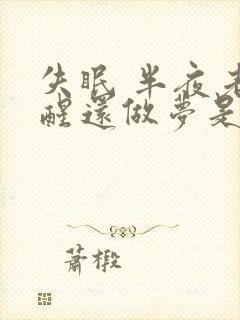 失眠 半夜老
醒還做夢是
蕭椴